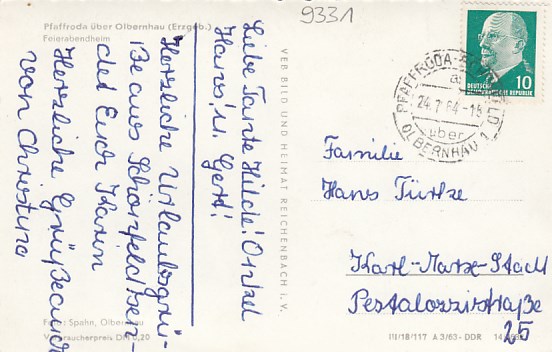 Pfaffroda über Olbernhau (Erzgeb.)
Feierabendheim
Liebe Tante Hilde! Onkel
Hans! u. Gert!
Herzliche Urlaubsgrü-
ße aus Schönfeld sen-
det Euch Karin
Herzliche Grüße auch
von Christina
Foto: Spahn, Olbernhau
Verbraucherpreis DM 0,20
VEB BILD UND HEIMAT REICHENBACH i. V.
9331
10
DEUTSCHE
DEMOKRATISCHE REPUBLIK
PFAFFRODA-
24.7.64-18
über
OLBERNHAU 1
Familie
Hans Türke
Karl-Marx-Stadt
Pestalozzistraße
25
III/18/117 A 3/63 - DDR